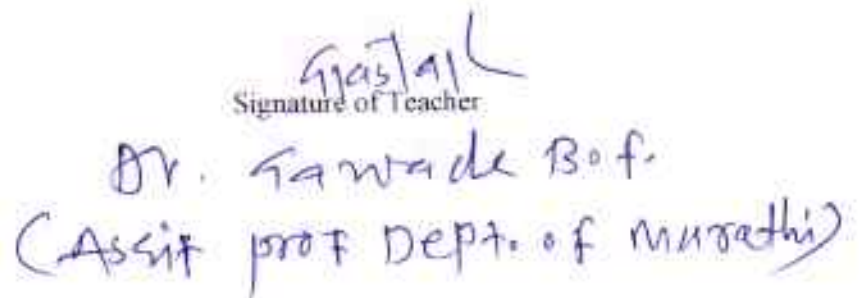 Signature of Teacher
Dr. Gawade B.F.
(Assit prof Dept. of Marathi)